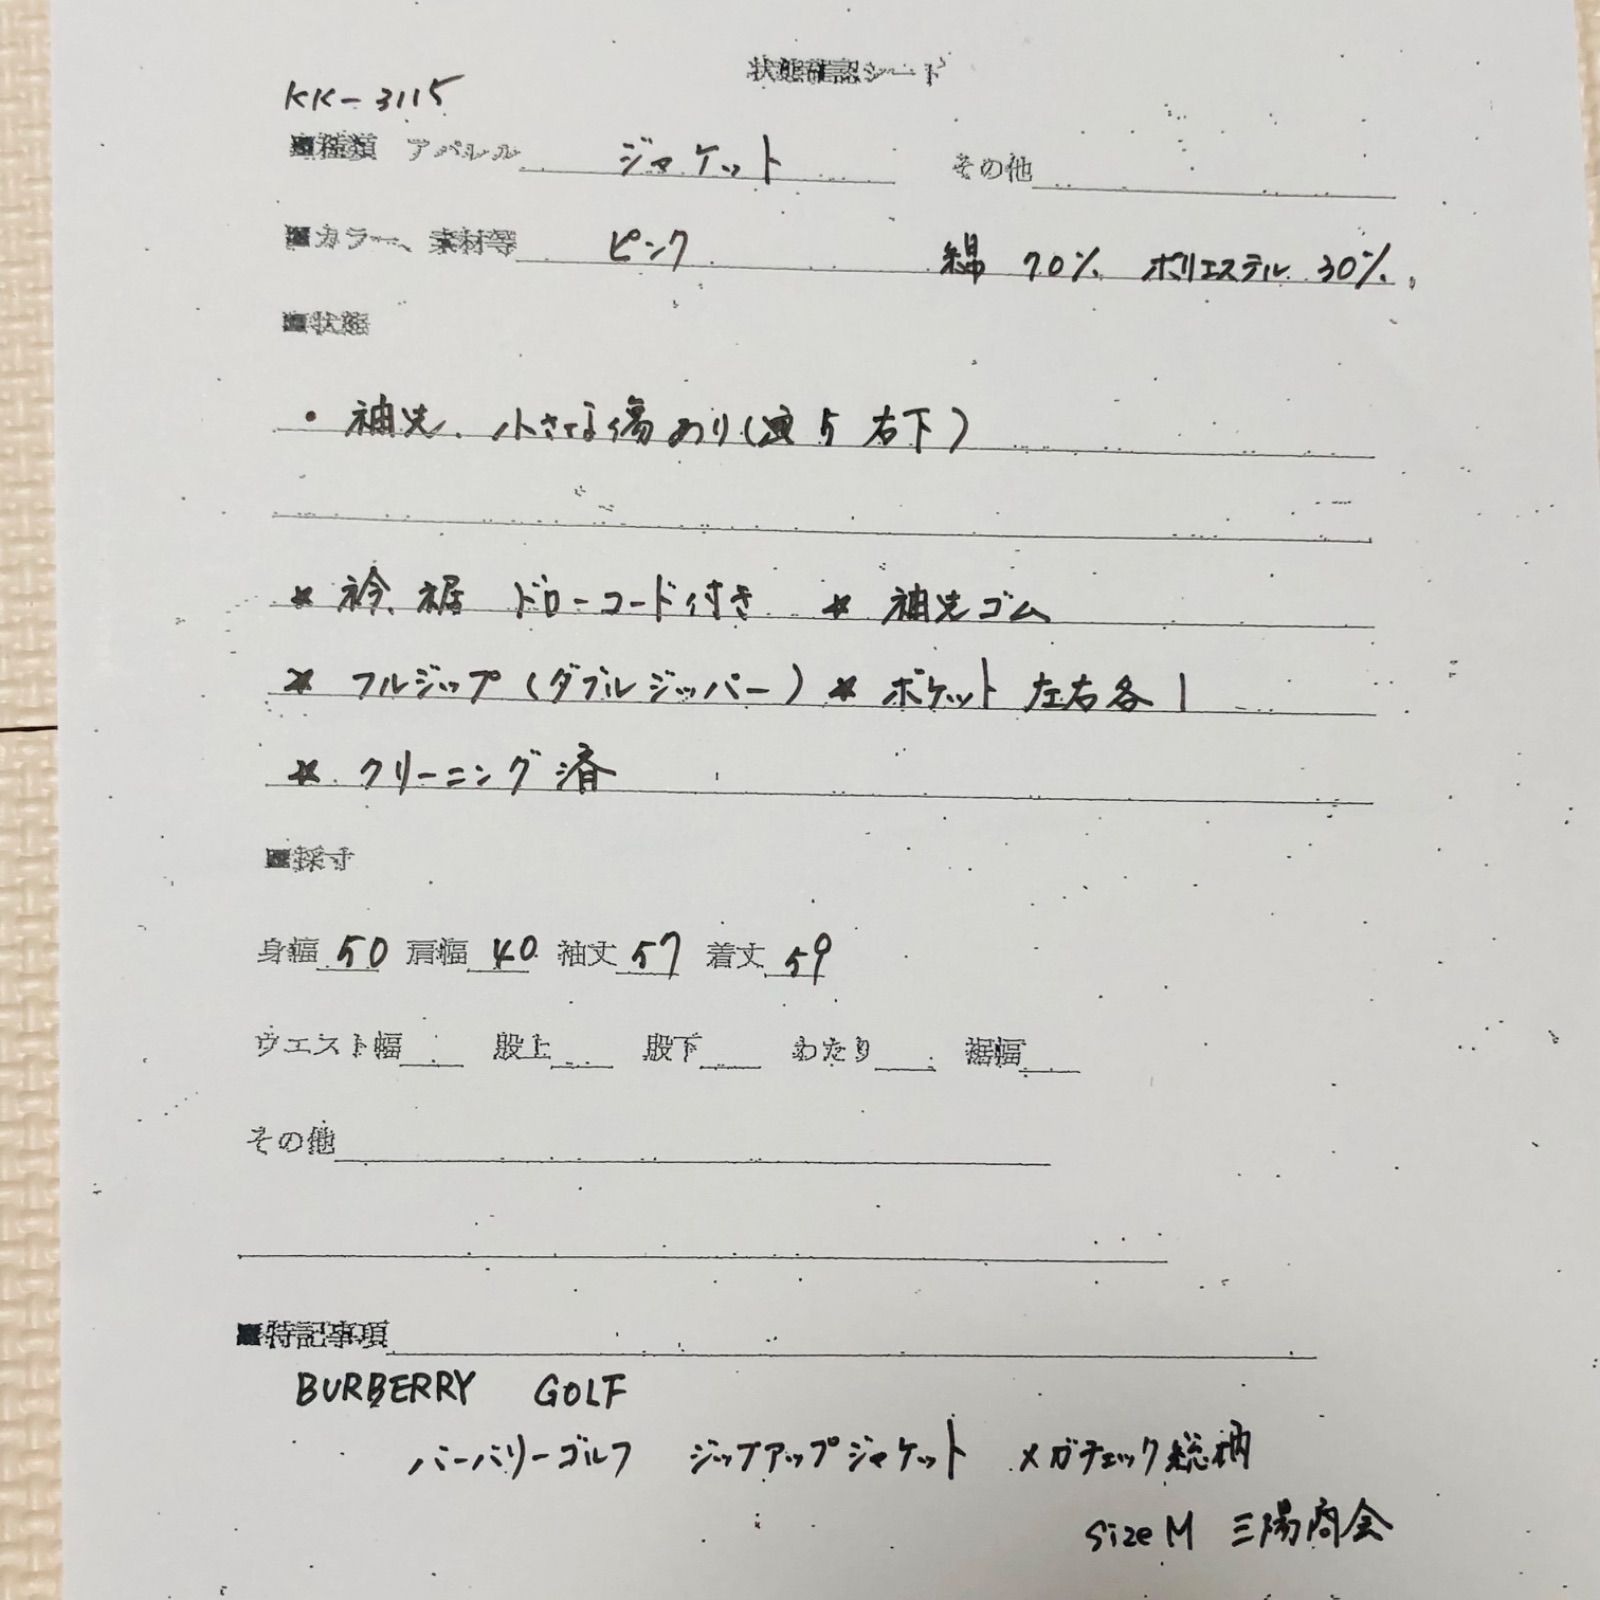 状態確認シート
KK-3115
■種類 アパレル ジャケット その他
■カラー、素材等 ピンク 綿 70% ポリエステル 30%
■状態
・袖先、小さな傷あり( 5 右下)
★ 衿、裾 ドローコード付き ★ 袖先ゴム
★ フルジップ(ダブルジッパー) ★ ポケット 左右各1
★ クリーニング済
■採寸
身幅 50 肩幅 40 袖丈 57 着丈 59
ウエスト幅 股上 股下 わたり 裾幅
その他
■特記事項
BURBERRY GOLF
バーバリーゴルフ ジップアップジャケット メガチェック総柄
size M 三陽商会